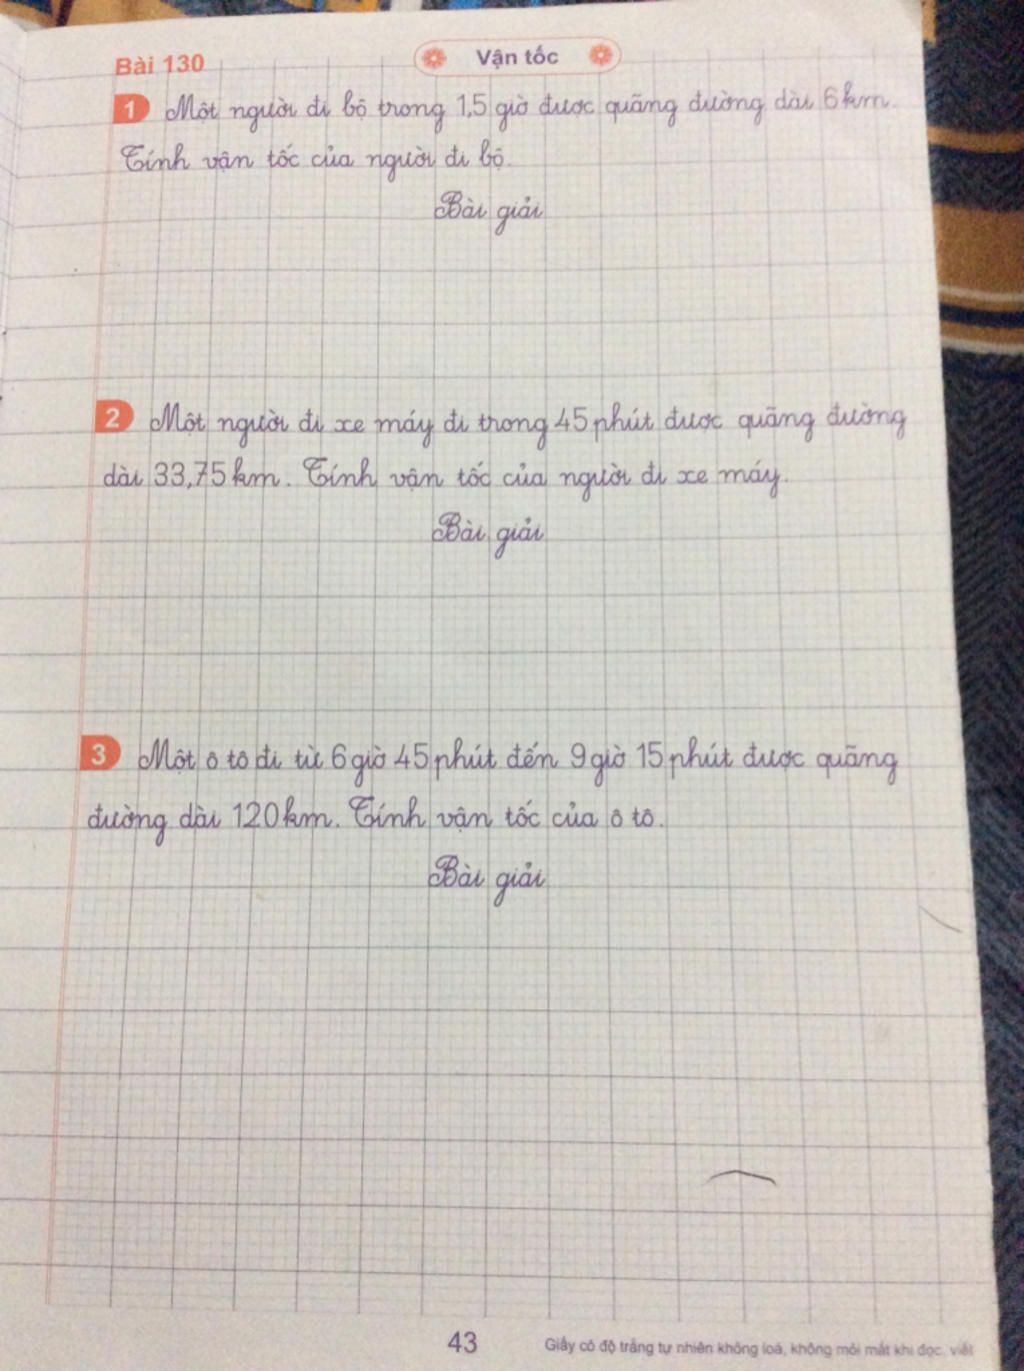 Bài 130
Vận tốc
1 Một người đi bộ trong 1,5 giờ được quãng đường dài 6km.
Tính vận tốc của người đi bộ.
Bài giải
2 Một người đi xe máy đi trong 45 phút được quãng đường
dài 33,75km. Tính vận tốc của người đi xe máy.
Bài giải
3 Một ô tô đi từ 6 giờ 45 phút đến 9 giờ 15 phút được quãng
đường dài 120km. Tính vận tốc của ô tô.
Bài giải
43
Giấy có độ trắng tự nhiên không loá, không mỏi mắt khi đọc, viết